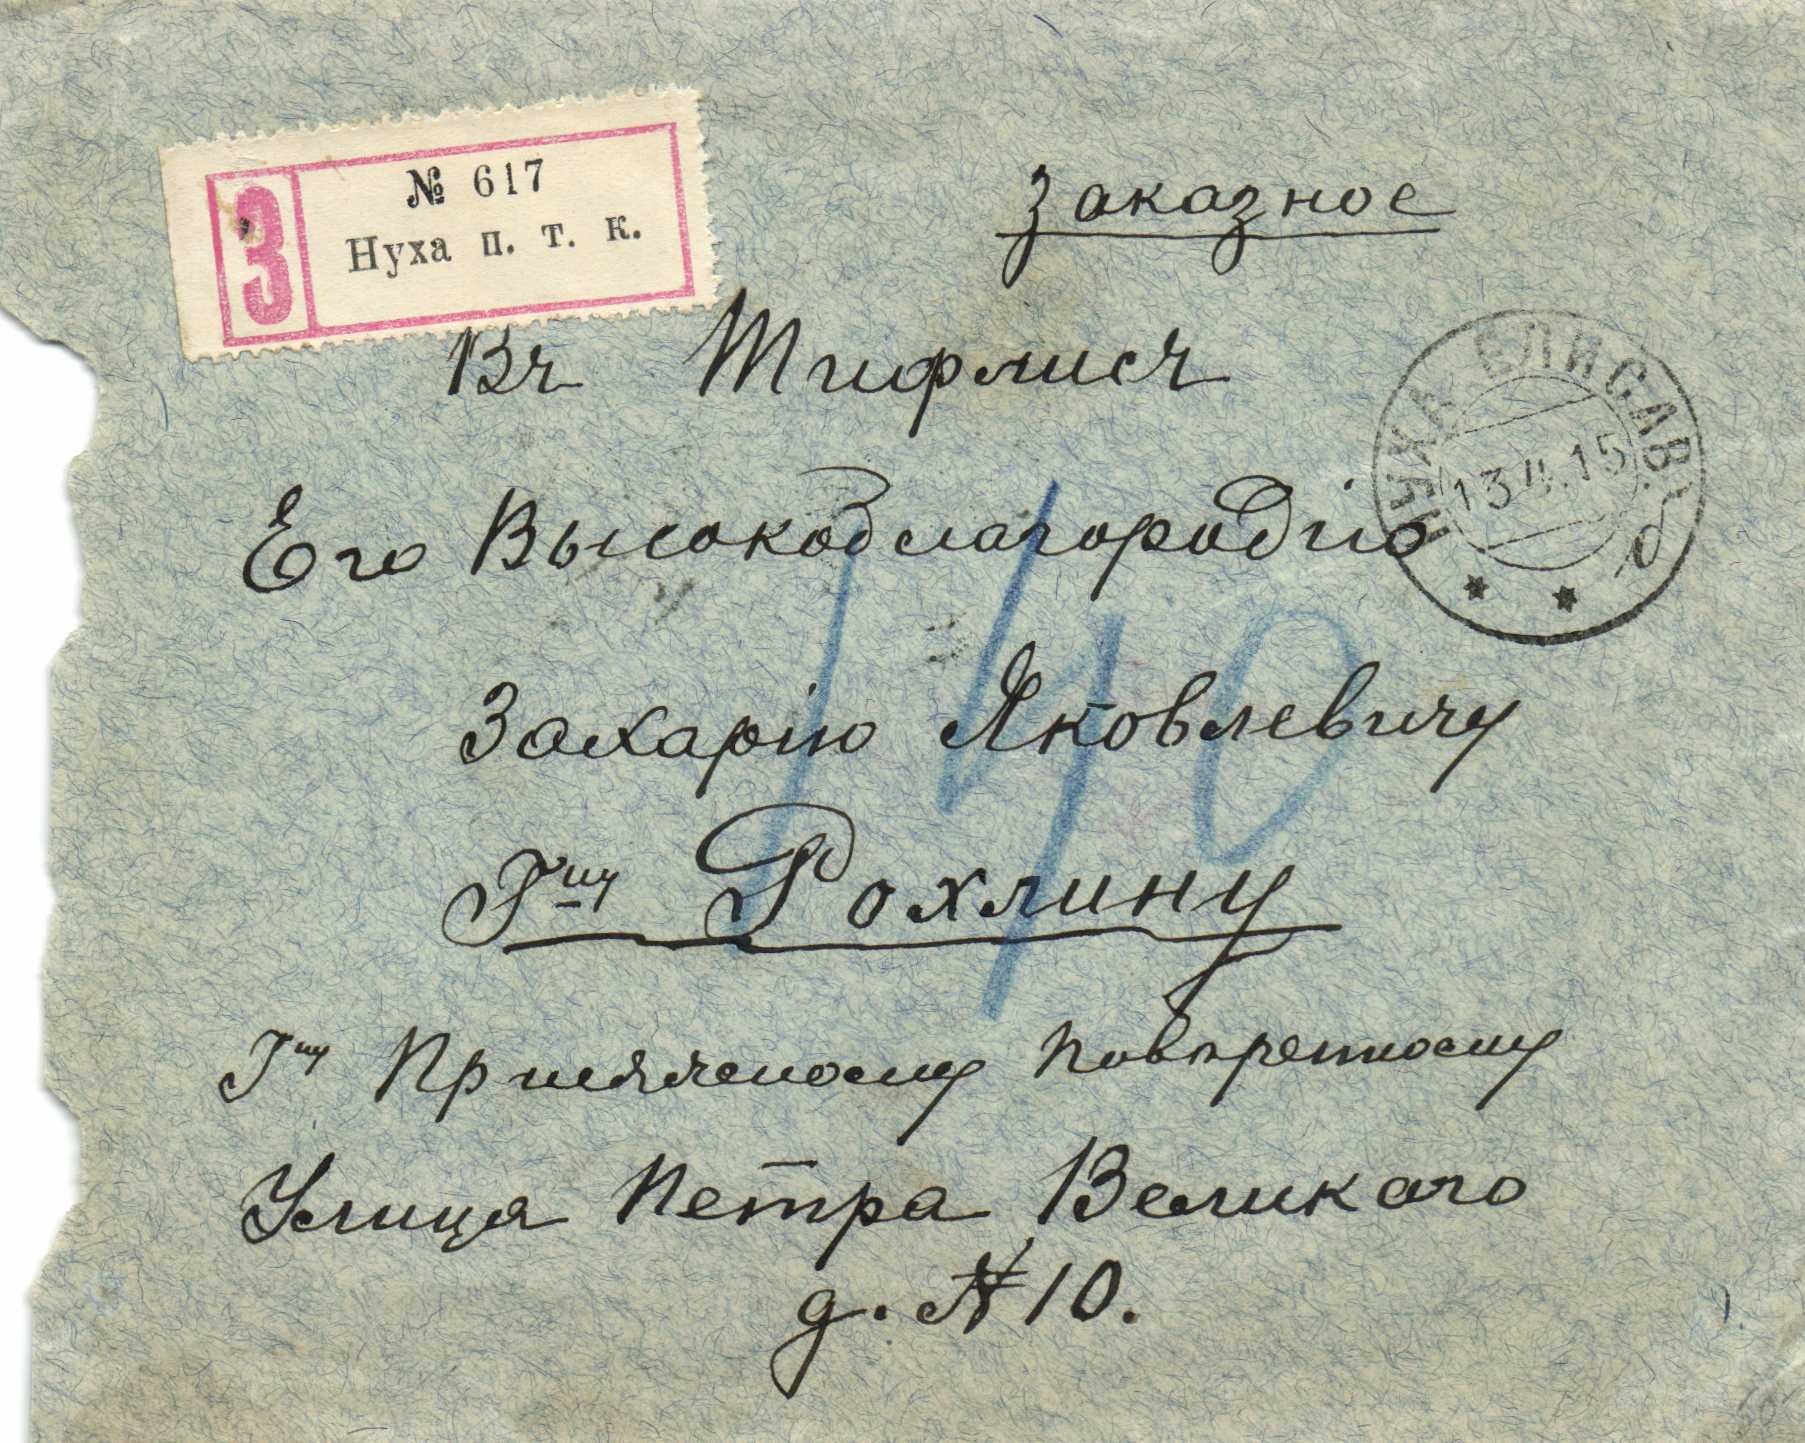 З
№ 617
Нуха п. т. к.
Заказное
Въ Тифлисъ
НУХА ЕЛИСАВ.
13.4.15
б
Его Высокоблагородію
Захарію Яковлевичу
Гну Рохлину
140
Гну Присяжному Повѣренному
Улица Петра Великаго
д. № 10.